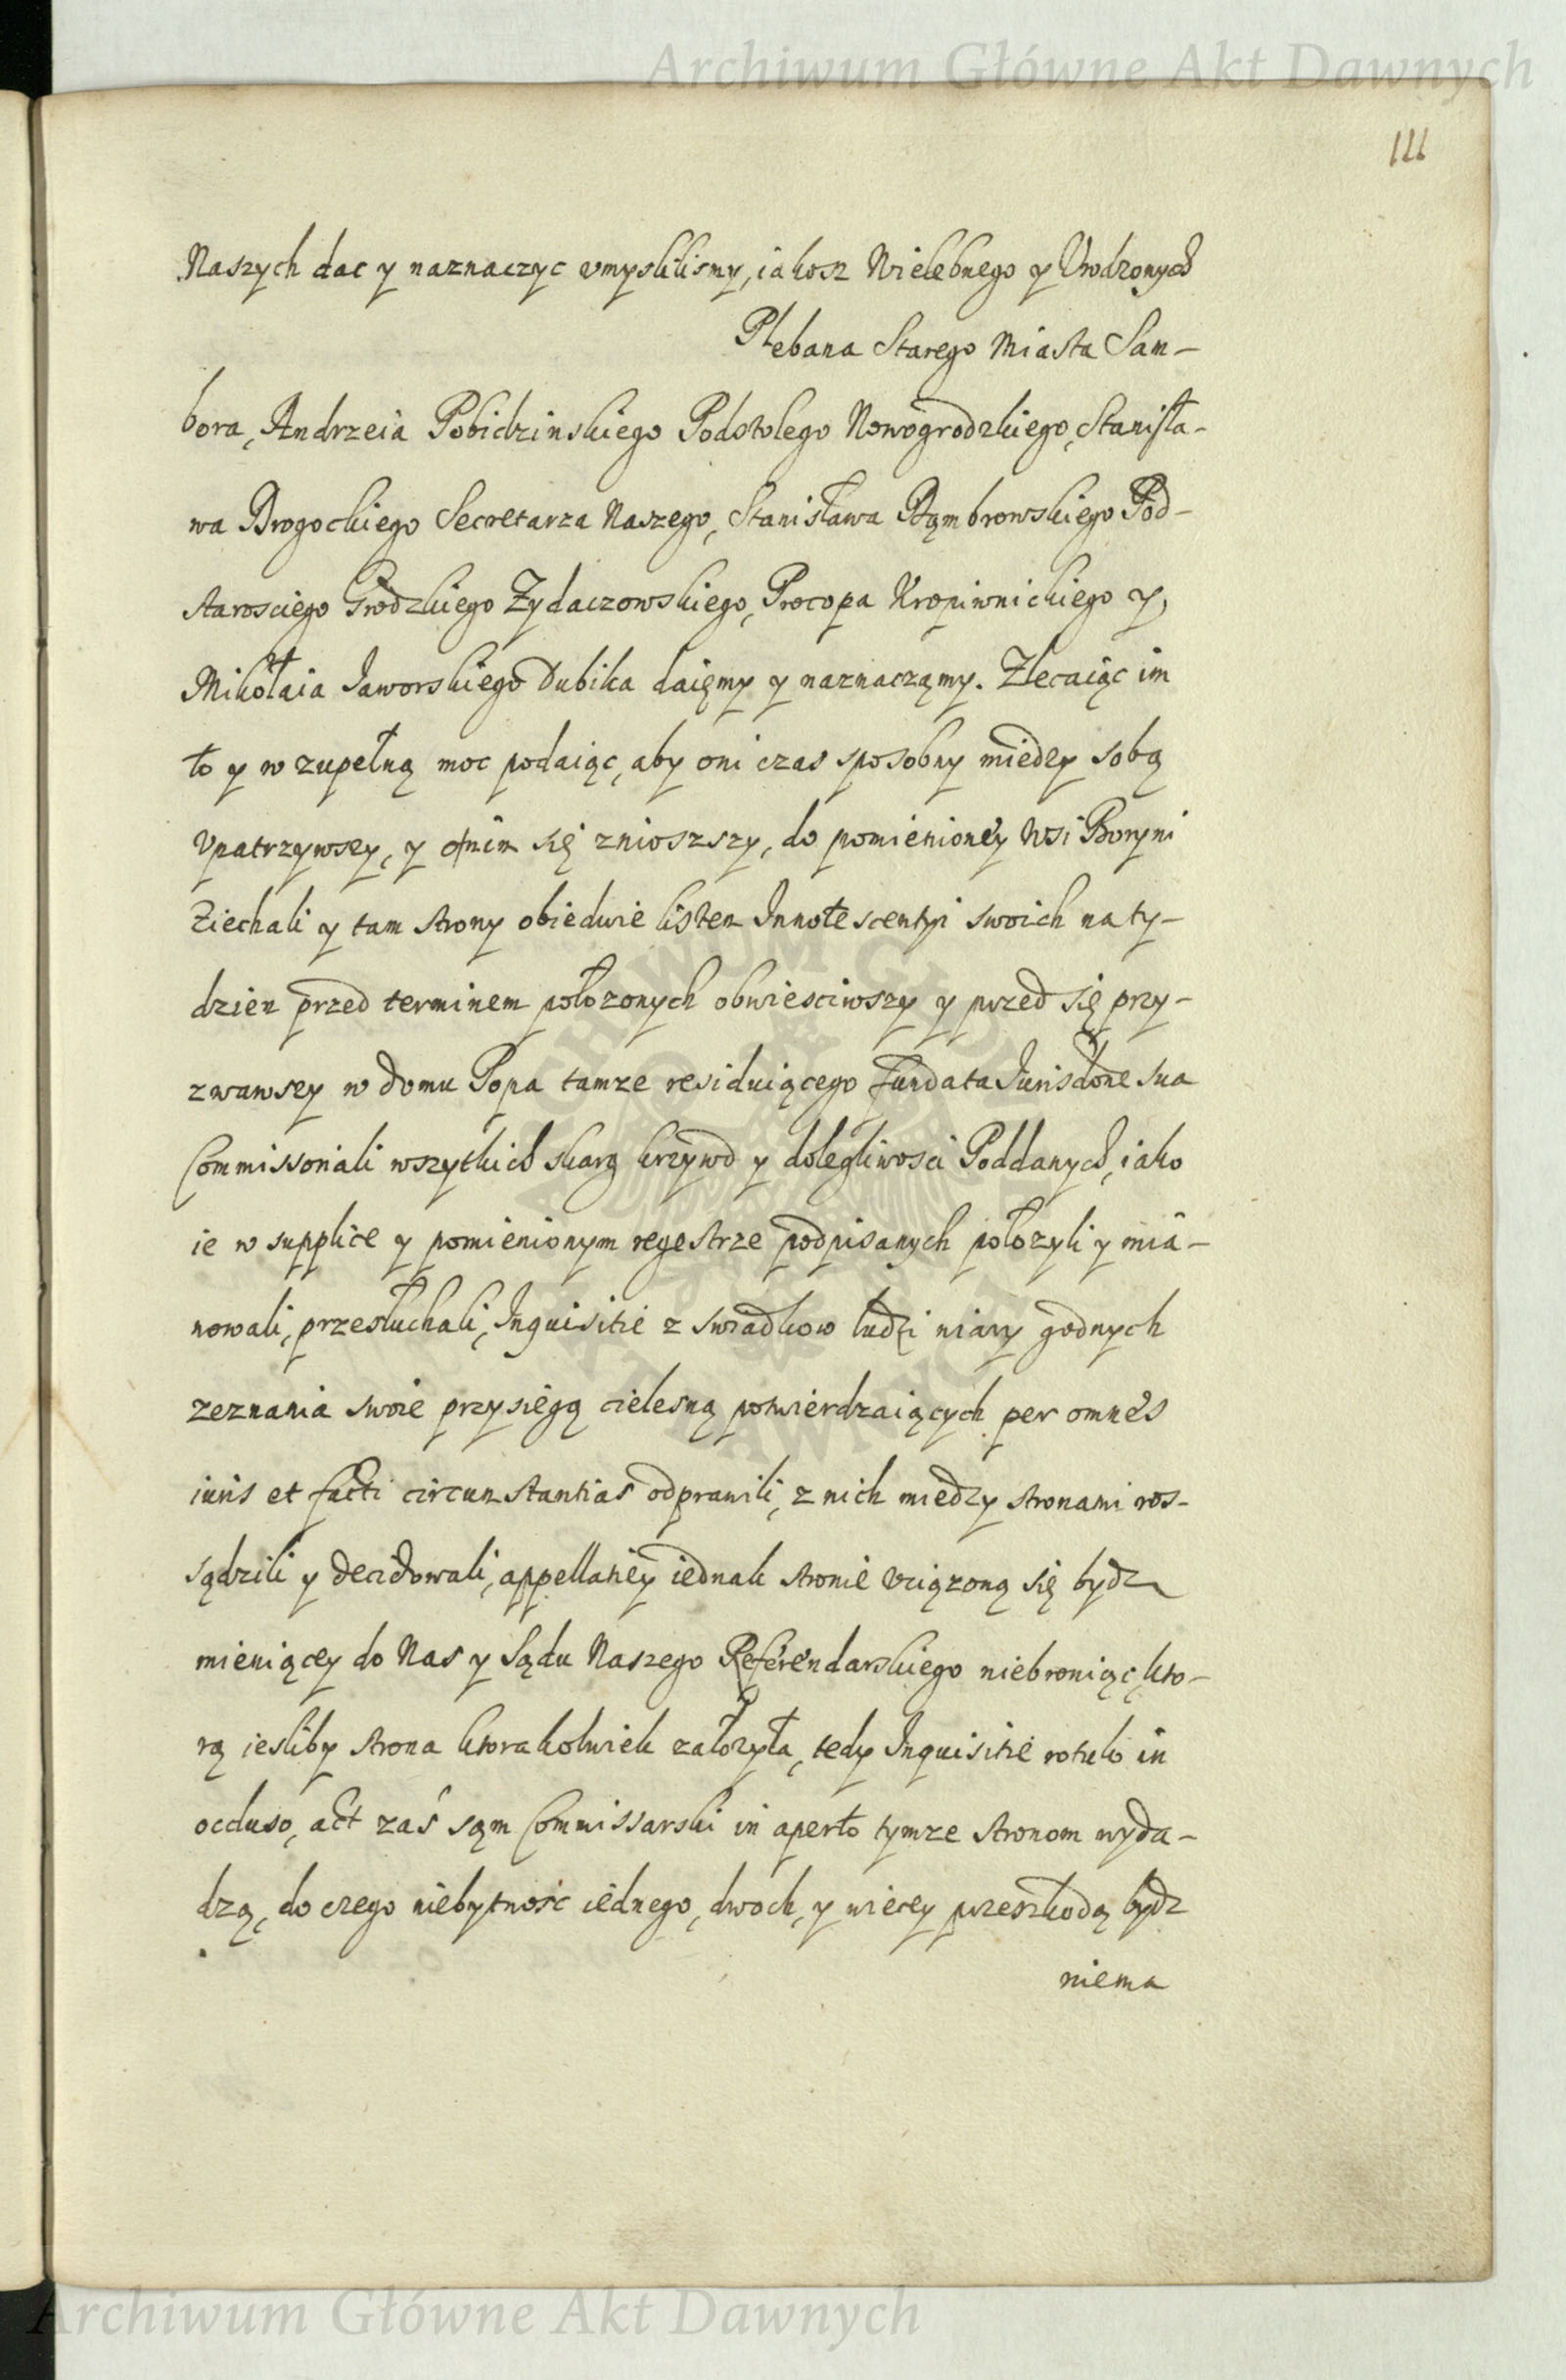 Archiwum Główne Akt Dawnych
111
Naszych dac y naznaczyc vmyslilismy, iakosz Wielebnego y Urodzonych
Plebana Starego Miasta Sam-
bora, Andrzeia Pobidzinskiego Podstolego Nowogrodzkiego, Stanisła-
wa Drogockiego Secretarza Naszego, Stanisława Dąmbrowskiego Pod-
starosciego Grodzkiego Zydaczowskiego, Procopa Kropiwnickiego y
Mikołaia Jaworskiego Dubika daięmy y naznacząmy. Zlecaiąc im
to y w zupełną moc podaiąc, aby oni czas sposobny miedzy sobą
vpatrzywsey, y się znioszszy, do pomienioney Wsi Boryni
Ziechali y tam strony obiedwie listem Innotescentyi swoich na ty-
dzien przed terminem położonych obwiesciwszy y przed się przy-
zwawsey w domu Popa tamze residuiącego fundata Jurisdōne sua
Commissoriali wszytkich skarg krzywd y dolegliwosci Poddanych, iako
ie w supplice y pomienionym regestrze podpisanych położyli y mia-
nowali, przesłuchali, Inquisitie z swiadkow ludzi wiary godnych
zeznania swoie przysięgą cielesną potwierdzaiących per omnes
iuris et facti circumstantias odprawili, z nich miedzy stronami ros-
sądzili y decidowali, appellatiey iednak stronie vciązoną się bydz
mieniącey do Nas y Sądu Naszego Referendarskiego niebroniąc, kto-
rą iesliby strona ktorakolwiek założyła, tedy Inquisitie rotulo in
occluso, act zaś sąm Commissarski in aperto tymze stronom wyda-
dzą, do czego niebytność iednego, dwoch, y wiecey przeszkodą bydz
niema
Archiwum Główne Akt Dawnych